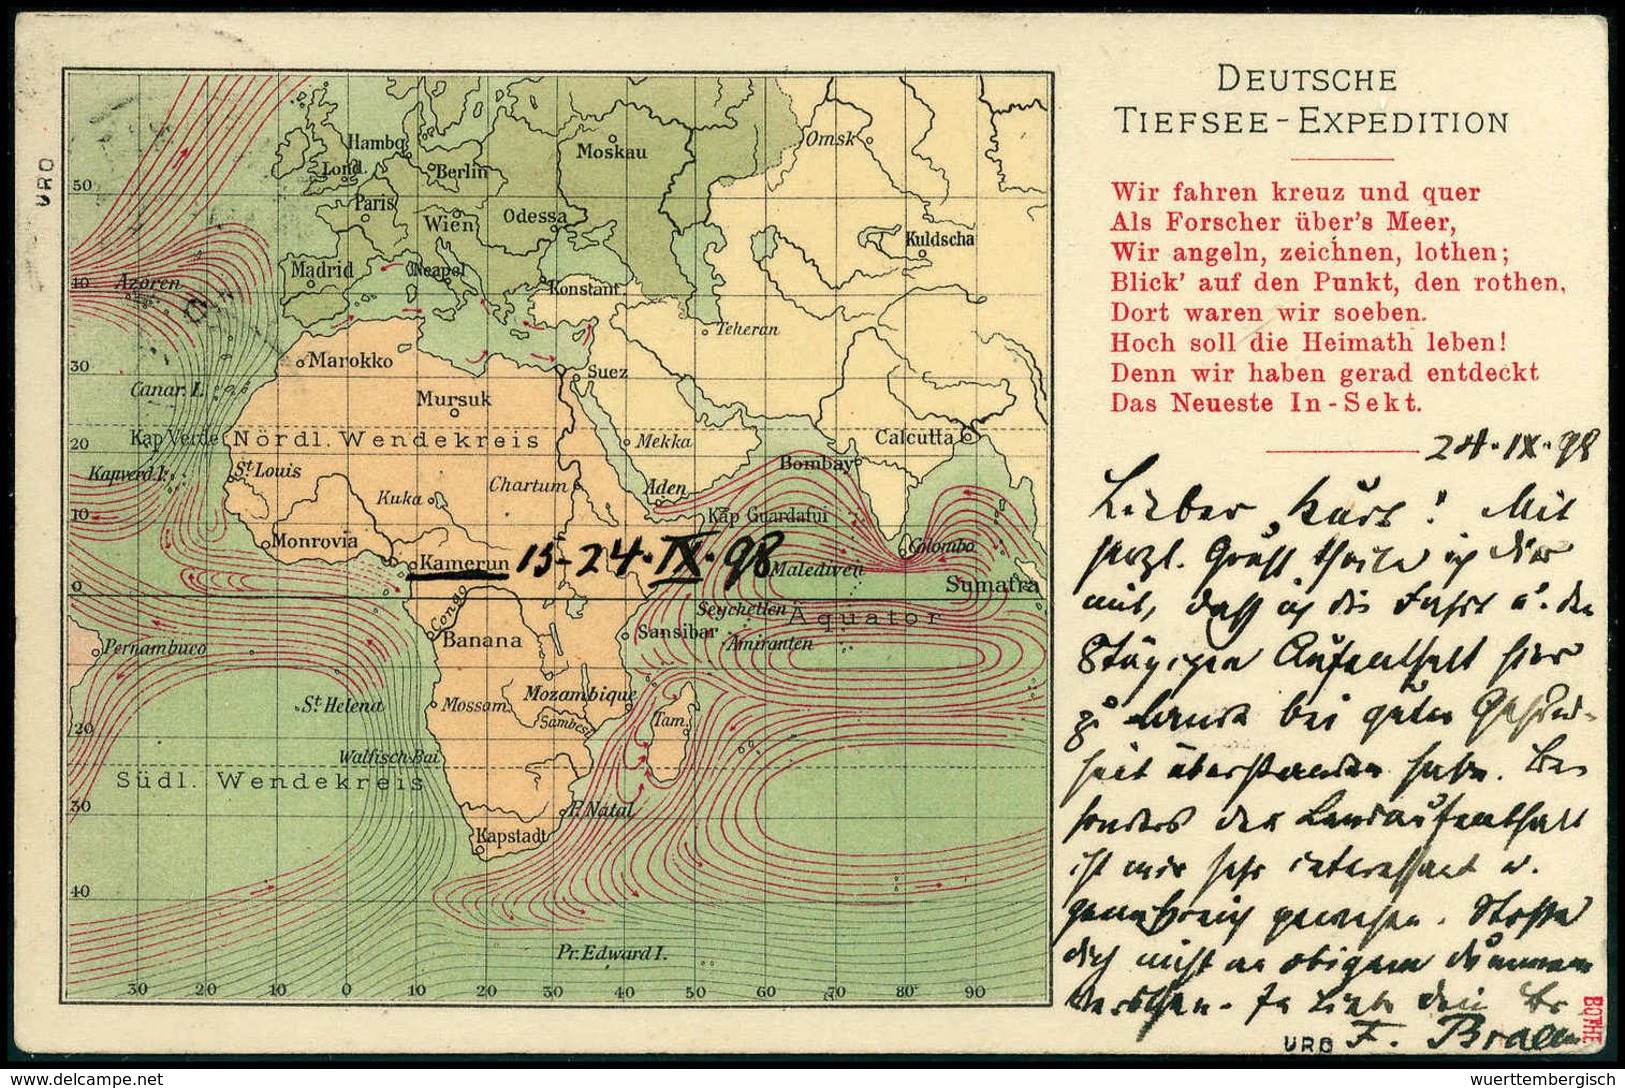 DEUTSCHE
TIEFSEE-EXPEDITION
Wir fahren kreuz und quer
Als Forscher über's Meer,
Wir angeln, zeichnen, lothen;
Blick' auf den Punkt, den rothen,
Dort waren wir soeben.
Hoch soll die Heimath leben!
Denn wir haben gerad entdeckt
Das Neueste In-Sekt.
24.IX.98
Lieber Kurt! Mit
herzl. Gruß theile ich dir
mit, daß ich die Fahrt u. den
Aufenthalt hier
zu Lande bei guter Gesund-
heit überstanden habe. Be-
sonders der Landaufenthalt
ist mir sehr interessant u.
gewesen. Stoße
dich nicht an obigem dummen
In Liebe dein
F.
URO
BOTHE
URO
Omsk
Moskau
Hambg
Berlin
Lond.
Paris
Wien
Odessa
Kuldscha
50
Madrid
Neapel
Konstant
40
Azoren
Teheran
Marokko
30
Suez
Canar. I.
Mursuk
Kap Verde
Nördl. Wendekreis
Mekka
Calcutta
20
Bombay
Kapverd I.
St. Louis
Kuka
Chartum
Aden
10
Kap Guardafui
Monrovia
Colombo
Kamerun
15-24.IX.98
Malediven
Sumatra
0
Congo
Seychellen
Äquator
Banana
Sansibar
Amiranten
Pernambuco
St. Helena
Mossam.
Mozambique
Sambesi
Tam.
20
Walfisch-Bai
Südl. Wendekreis
30
P. Natal
Kapstadt
40
Pr. Edward I.
30 20 10 0 10 20 30 40 50 60 70 80 90
wuerttembergisch